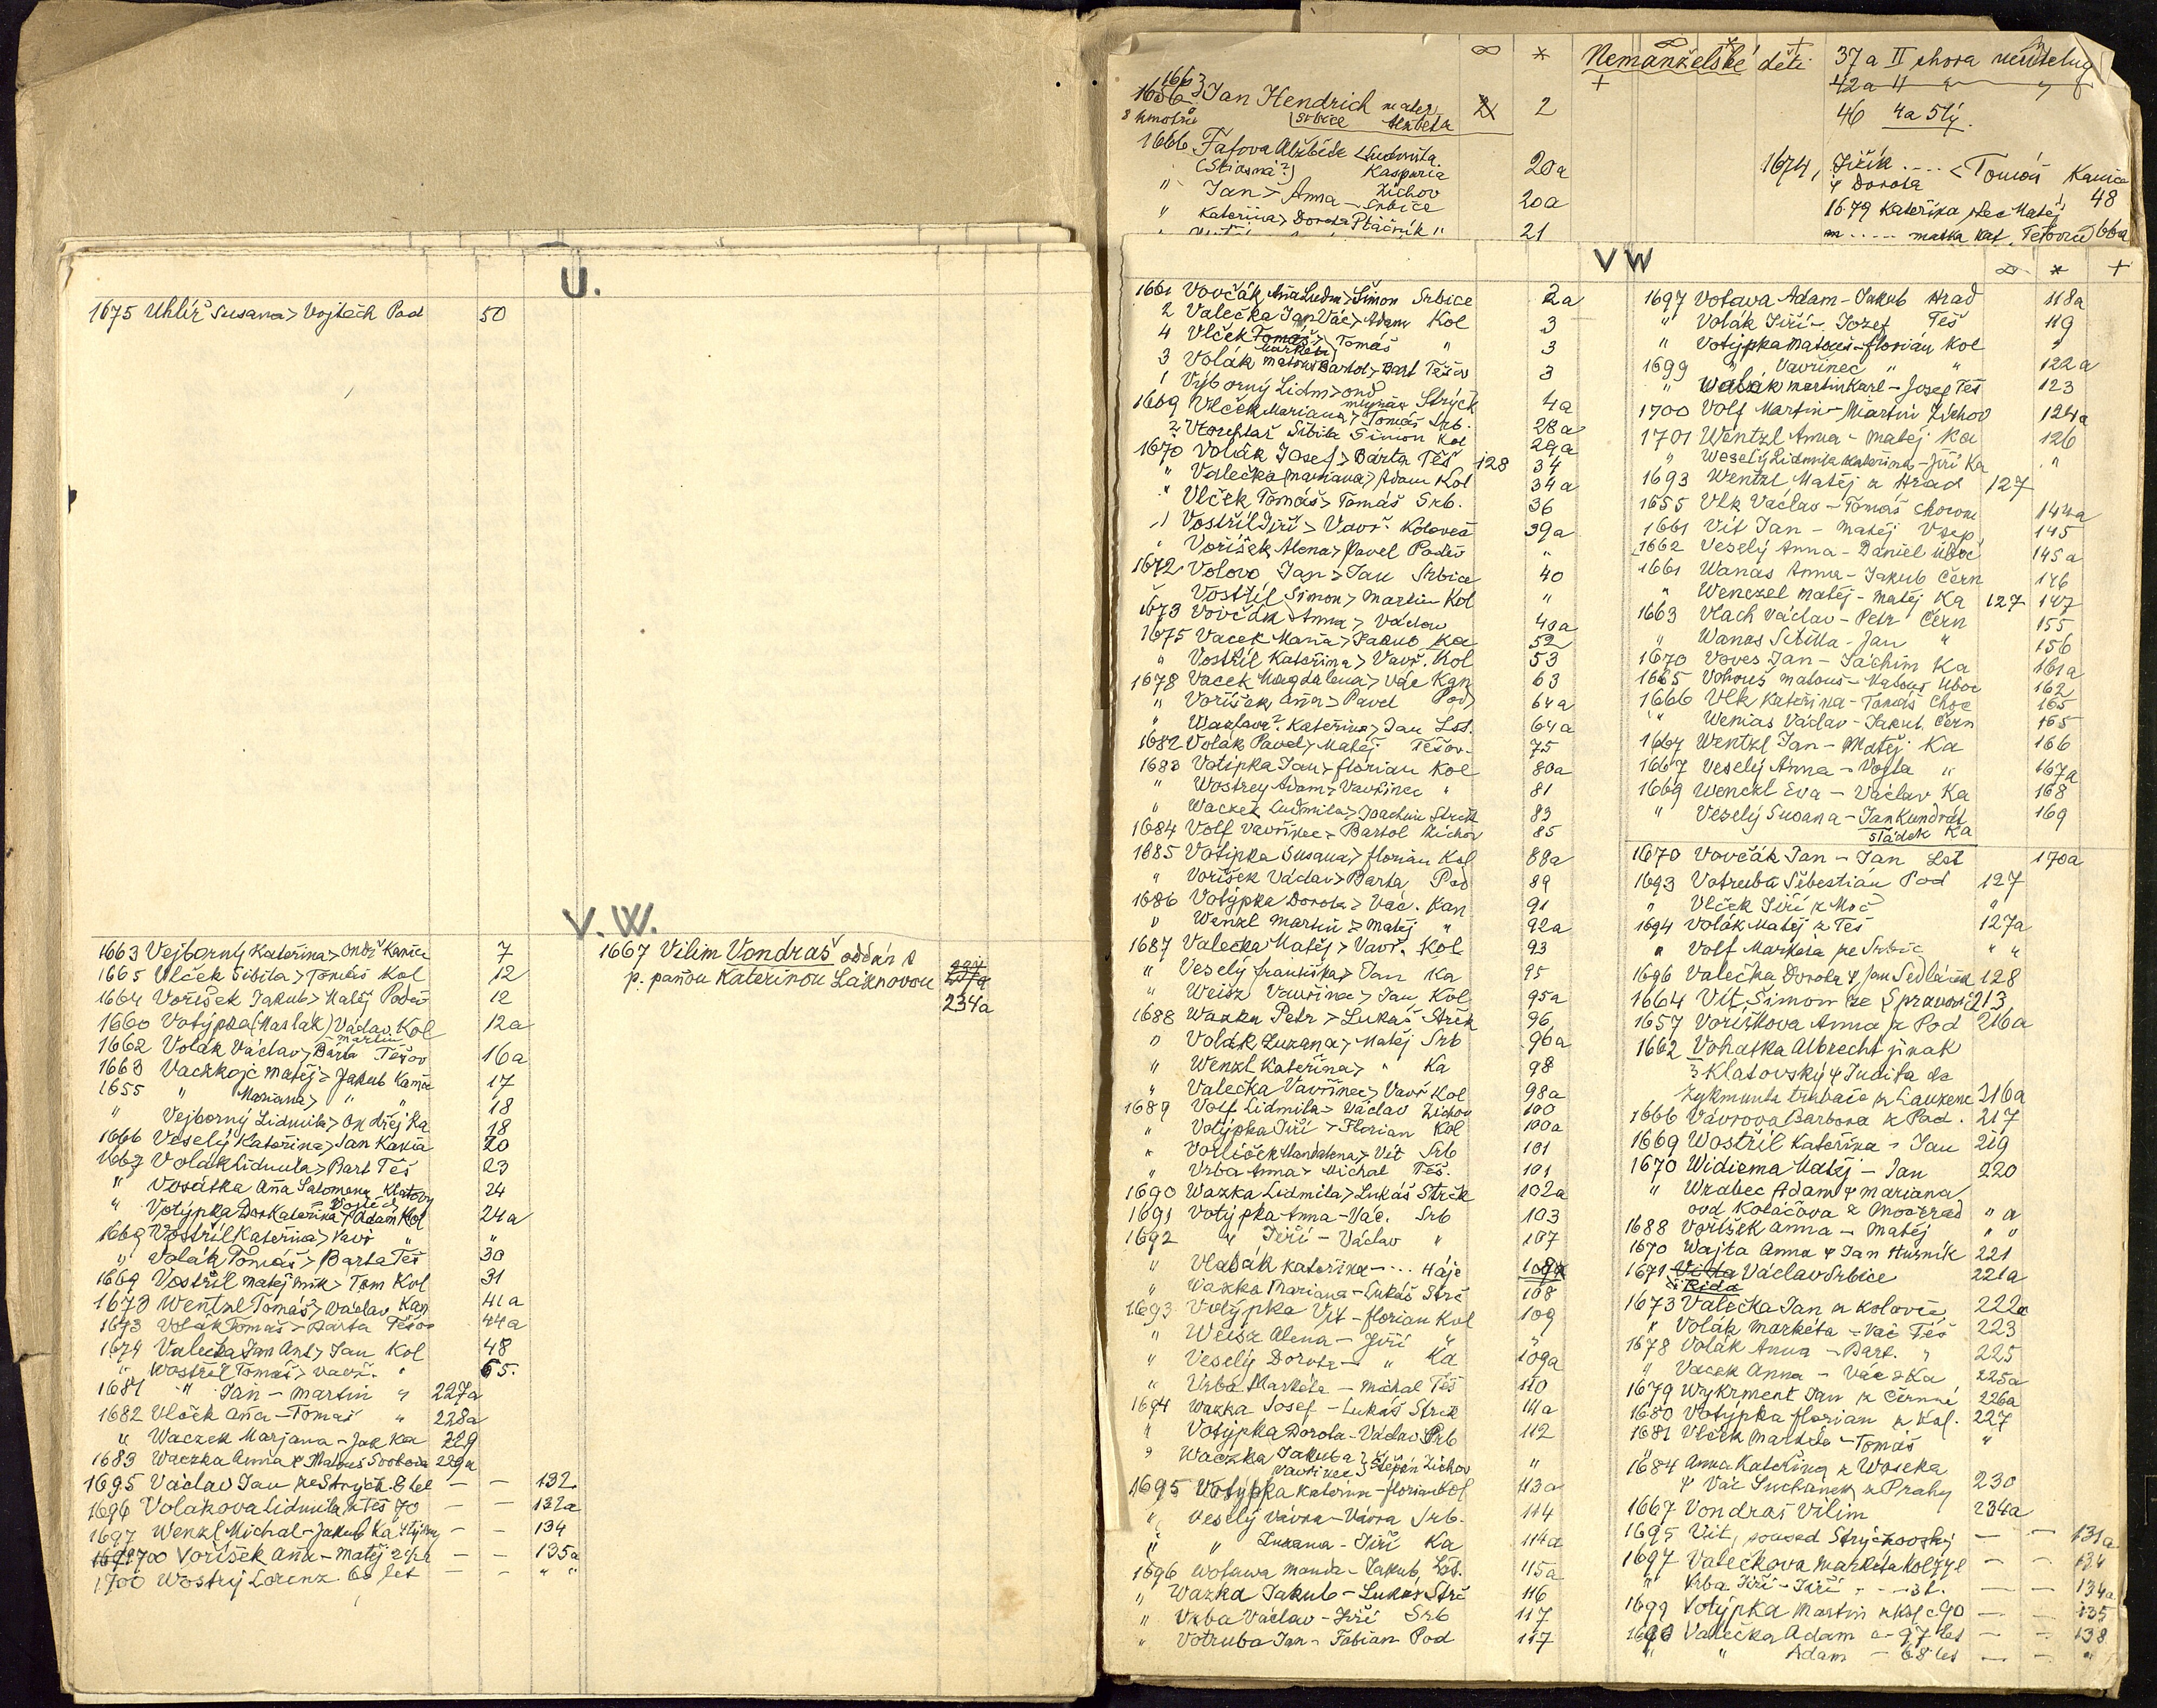 U.
1675 Uhlíř Susana > Vojtěch Pod 50
V. W.
1663 Vejborný Kateřina > Ondř Kanice 7
1665 Vlček Sibila > Tomáš Kol 12
1664 Voříšek Jakub > Matěj Poděv 12
1660 Votýpka (Maslak) Václav Kol 12a
1662 Volák Václav > Bárta Tešov 16a
1663 Vackojc Matěj > Jakub Kanic 17
1655 " Mariana > " " 18
" Vejborný Lidmila > Ondřej Ka 18
1666 Veselý Kateřina > Jan Kanica 20
1667 Volák Lidmila > Bart Teš 23
" Vosátka Aña Salomena Klatovy 24
" Votýpka Dor Kateřina > Vojtěch Adam Kol 24a
1669 Vostřil Kateřina > Vavř " "
" Volák Tomáš > Barta Teš 30
1669 Vostřil Matěj > Tom Kol 31
1673 Wentzl Tomáš > Václav Kan 41a
1673 Volák Tomáš > Bárta Tešov 44a
1674 Valečka Jan Ant > Jan Kol 48
" Wostřel Tomáš > Vavř. " 65.
1681 " Jan - Martin " 227a
1682 Vlček Aña - Tomaš " 228a
" Waczek Marjana - Jak Ka 229
1683 Waczka Anna & Matouš Svoboda 229a
1695 Václav Jan ze Strýčk. 8 let — — 132
1696 Volakova Lidmila z Teš 70 — — 132a
1697 Wenzl Michal - Jakub Ka — — 134
1700 Voříšek Aña - Matěj — — 135a
1700 Wostrý Lorenz 60 let — — " "
1667 Vilim Vondraš oddán s
p. pañou Kateřinou Láznovou
234a
∞ * Nemanželské děti 37a II chora
+ 42a II " "
1663 Jan Hendrich mater 2 2 46 4a
Srbice Alžbeta
1666 Fafova Alžběta < Ludmila 20a 1674, Jiřík .... < Tomáš Kanice
(Stiasná?) Kasparia & Dorota 48
" Jan > Anna Zíchov Srbice 20a 1679 Kateřina Matěj
" Kateřina > Dorota Ptáčník " 21 matka Kat. Tešovic 66a
V W ∞ * +
1661 Vovčák Aña Ludm > Šimon Srbice 2a
2 Valečka Jan Vác > Adam Kol 3
4 Vlček Tomáš > Tomáš " 3
3 Volák Matouš Bartol > Bart Tešov 3
1 Výborný Lidm > Ond mlynář Strýčk 4a
1669 Vlček Mariana > Tomáš Srb. 28a
Sibila Šimon Kol 29a
1670 Volák Josef > Bárta Teš 128 34
" Valečka Mariana > Adam Kol 34a
" Vlček Tomáš > Tomáš Srb. 36
" Vostřil Jiří > Vavř. Koloveč 39a
" Voříšek Alena > Pavel Poděv "
1672 Volovo Jan > Jan Srbice 40
Vostřil Simon > Martin Kol "
1673 Vovčák Anna > Václav 40a
1675 Vacek Maria > Jakub Ka 52
" Vostřil Kateřina > Vavř. Kol 53
1678 Vacek Magdalena > Vác Kan 63
" Voříšek Aña > Pavel Pod 64a
" Waxlava? Kateřina > Jan Lst. 64a
1682 Volák Pavel > Matěj Tešov. 75
1683 Votipka Jan > Florian Kol 80a
" Wostrey Adam > Vavřinec " 81
" Waczek Ludmila > Joachim Strčk 83
1684 Volf Vavřinec > Bartol Zíchov 85
1685 Votipka Susana > Florian Kol 88a
" Voříšek Václav > Barta Pod 89
1686 Votýpka Dorota > Vác. Kan 91
" Wenzl Martin > Matěj " 92a
1687 Valečka Matěj > Vavř. Kol 93
" Veselý Františka > Jan Ka 95
" Weisz Vavřinec > Jan Kol 95a
1688 Wazka Petr > Lukáš Strčk 96
" Volák Zuzana > Matěj Srb 96a
" Wenzl Kateřina > " Ka 98
" Valečka Vavřinec > Vavř Kol 98a
1689 Volf Lidmila > Václav Zíchov 100
" Votýpka Jiří > Florian Kol 100a
" Vorlíček Mandalena > Vít Srb 101
" Vrba Anna > Michal Teš. 101
1690 Wazka Lidmila > Lukáš Strčk 102a
1691 Votýpka Anna - Vác. Srb 103
1692 " Jiří - Václav " 107
" Vlasák Kateřina - ... Háje
" Wazka Mariana - Lukáš Strč 108
1693 Votýpka Vít - Florian Kol 109
" Weisz Alena - Jiří " "
" Veselý Dorota - " Ka 109a
" Vrba Markéta - Michal Teš 110
1694 Wazka Josef - Lukáš Strčk 111a
" Votýpka Dorota - Václav Srb 112
" Waczka Jakub a Vavřinec } Štěpán Zíchov "
1695 Votýpka Kateřina - Florian Kol 113a
" Veselý Vávra - Vávra Srb. 114
" " Zuzana - Jiří Ka 114a
1696 Wotawa Manda - Jakub, Lst. 115a
" Wazka Jakub - Lukáš Strč 116
" Vrba Václav - Jiří Srb 117
" Votruba Jan - Fabian Pod 117
1697 Votava Adam - Jakub Hrad 118a
" Volák Jiří - Jozef Teš 119
" Votýpka Matouš - Florián Kol "
1699 " Vavřinec " " 122a
" Volák Martin Karl - Josef Teš 123
1700 Volf Martin - Martin Zíchov 124a
1701 Wentzl Anna - Matěj Ka 126
" Weselý Lidmila Kateřina - Jiří Ka "
1693 Wentzl Matěj z Hrad 127
1655 Vlk Václav - Tomáš Chocom 144a
1661 Vít Jan - Matěj Vsep 145
1662 Veselý Anna - Daniel Úboč 145a
1661 Wanas Anna - Jakub Čern 146
" Wenczel Matěj - Matěj Ka 127 147
1663 Vlach Václav - Petr Čern 155
" Wanas Sibilla - Jan " 156
1670 Voves Jan - Jáchim Ka 161a
1665 Vohouš Matouš - Matouš Úboč 162
1666 Vlk Kateřina - Tomáš Choc 165
" Wenias Václav - Jakub Čern 165
1667 Wentzl Jan - Matěj Ka 166
1667 Veselý Anna - Vojta " 167a
1669 Wenczl Eva - Václav Ka 168
" Veselý Susana - Jan Kundrát 169
Sládek Ka
1670 Vovčák Jan - Jan Lst 170a
1693 Votruba Šebestián Pod 127
" Vlček Jiří z Moč "
1694 Volák Matěj z Teš 127a
" Volf Markéta ze Srbic " "
1696 Valečka Dorota & Jan Sedláček 128
1664 Vít Šimon ze Spravovic 213
1657 Voříškova Anna z Pod 216a
1662 Vohatka Albrecht jinak
Klatovský & Judita dc
Zykmunta trubače z Lauzene 216a
1666 Vávrova Barbora z Pad. 217
1669 Wostřil Kateřina - Jan 219
1670 Widiema Matěj - Jan 220
" Wrabec Adam & Mariana
ovd Koláčova z Mogrrad " a
1688 Voříšek Anna - Matěj " "
1670 Wajta Anna & Jan Husník 221
1671 Václav Srbice 221a
Rida
1673 Valečka Jan z Koloveč 222a
" Volák Markéta - Vác Teš 223
1678 Volák Anna - Bart. " 225
" Vacek Anna - Vác z Ka 225a
1679 Wykrment Jan z Černné 226a
1680 Votýpka Florian z Kol. 227
1681 Vlček Markéta - Tomáš "
1684 Anna Kateřina z Woseka
& Vác Suchánek z Prahy 230
1667 Vondraš Vilim 234a
1695 Vít, soused Strýčkovský — — 131a
1697 Valečkova Markéta Kol — — 134
" Vrba Jiří - Jiří — — 134a
1699 Votýpka Martin z Kol c 90 — — 135
Valečka Adam c - 97 let — — 138
" " Adam - 68 let — — "